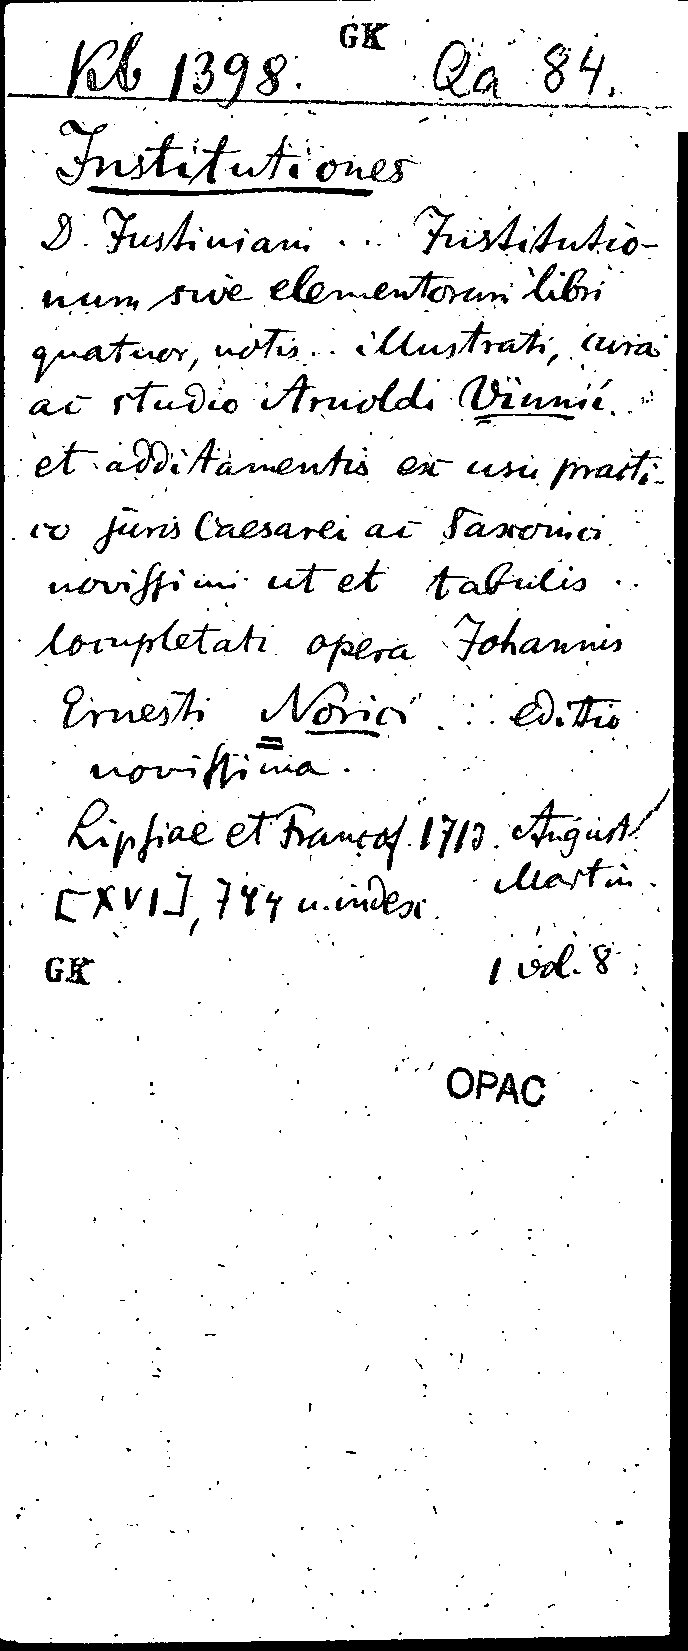 GK
Kb 1398. Qa 84.
Institutiones
D. Justiniani ... Institutio-
num sive elementorum libri
quatuor, notis .. illustrati, cura
ac studio Arnoldi Vinnii ..
et additamentis ex usu practi-
co juris Caesarei ac Saxonici
novissimi ut et tabulis ..
locupletati opera Johannis
Ernesti Norici ... editio
novissima.
Lipsiae et Francof. 1713. August
Martin.
[XVI], 744 u. index.
GK 1 vol. 8
OPAC